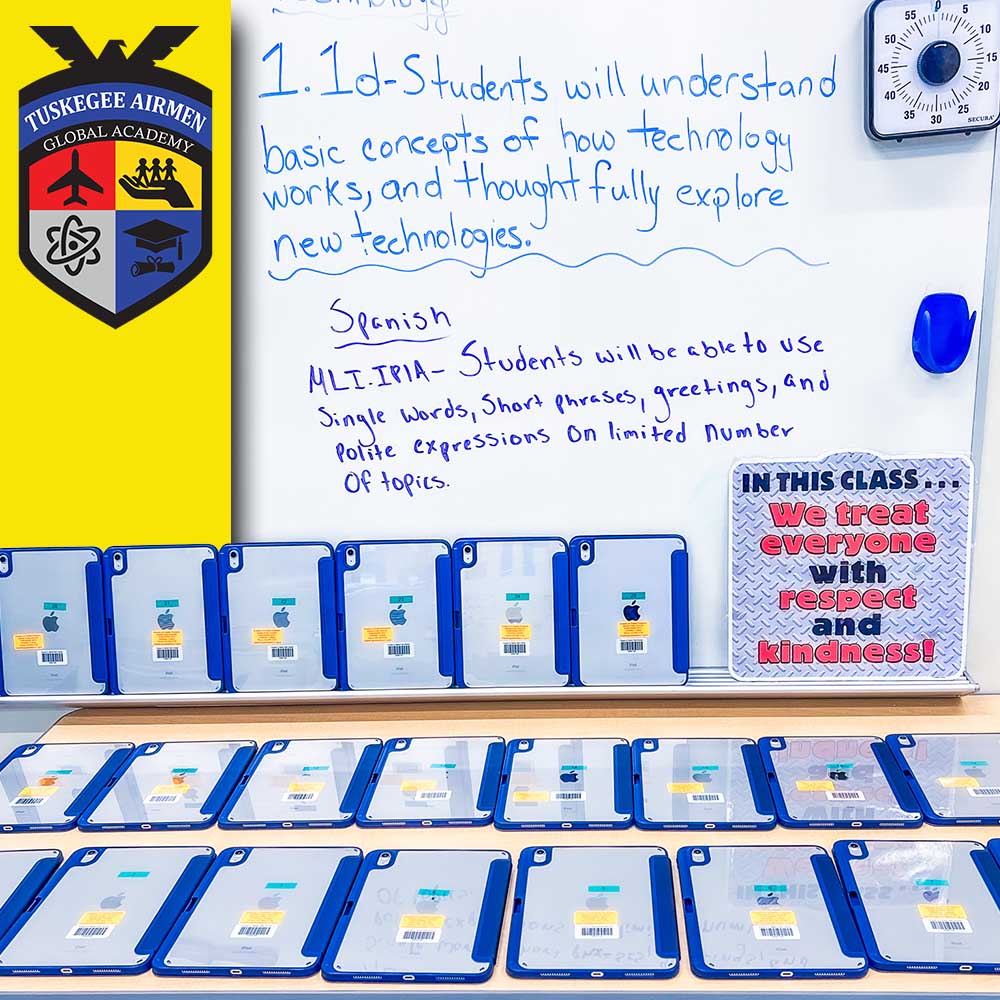 Technology
TUSKEGEE AIRMEN
GLOBAL ACADEMY
1.1d-Students will understand
basic concepts of how technology
works, and thoughtfully explore
new technologies.
Spanish
MLI.IP1A- Students will be able to use
Single words, Short phrases, greetings, and
Polite expressions On limited number
Of topics.
55 0 5
50 10
45 15
40 20
35 30 25
SECURA
IN THIS CLASS...
We treat
everyone
with
respect
and
kindness!
iPad
iPad
iPad
iPad
iPad
iPad